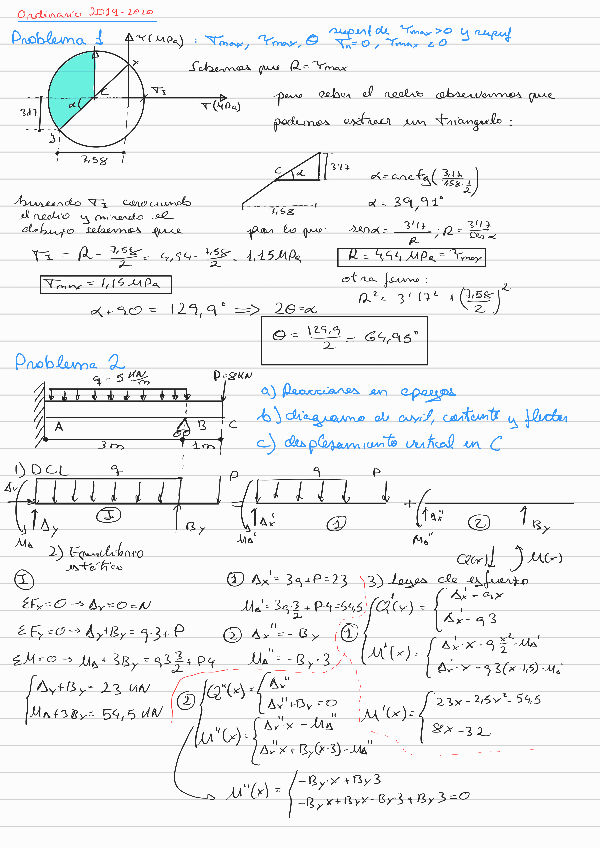 Ordinario 2019-2020
Problema 1
τ(MPa) : σmax, τmax, θ superf de τmax>0 y superf
σn=0, τmax<0
Sabemos que R=τmax
para saber el radio observamos que
podemos extraer un triangulo:
x
C
α
σ1
σ(MPa)
3,17
y
7,58
C α 3'17
7,58
α=arctg(3,17/7,58·1/2)
α= 39,91°
buscando σ1 conociendo
el radio y mirando el
dibujo sabemos que
por lo que senα= 3'17/R ; R= 3'17/sen α
σ1 = R - 7,58/2 = 4,94 - 7,58/2 = 1,15 MPa
R= 4,94 MPa = τmax
σmax = 1,15 MPa
otra forma:
R²= 3'17² + (7,58/2)²
α+90 = 129,9° => 2θ=α
θ = 129,9/2 = 64,95°
Problema 2
q=5 kN/m
P=8kN
A B C
3m 1m
a) Reacciones en apoyos
b) diagrama de axil, cortante y flector
c) desplazamiento vertical en C
1) DCL q P q P
Ax Ay MA I By = Ax' MA' 1 + Ax'' MA'' 2 By
2) Equilibrio
estático
Q(x) M(x)
I
ΣFx=0 → Ax=0=N
ΣFy=0 → Ay+By=q·3+P
ΣM=0 → MA+3By=q3 3/2+P4
Ay+By= 23 kN
MA+3By= 54,5 kN
1 Ax'=3q+P=23
MA'=3q 3/2+P·4=54,5
2 Ax''=-By
MA''=-By·3
3) Leyes de esfuerzo
1 Q'(x) = Ax'-qx
Ax'-q3
M'(x) = Ax'·x-q x²/2-MA'
Ax'·x-q3(x-1,5)-MA'
M'(x) = 23x-2,5x²-54,5
8x-32
2 Q''(x) = Ax''
Ax''+By=0
M''(x) = Ax''x-MA''
Ax''x+By(x-3)-MA''
M''(x) = -By·x+By3
-Byx+Byx-By·3+By3=0